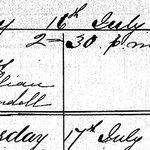 y 16th July
2-30 p m
lian
ndell
sday 17th July